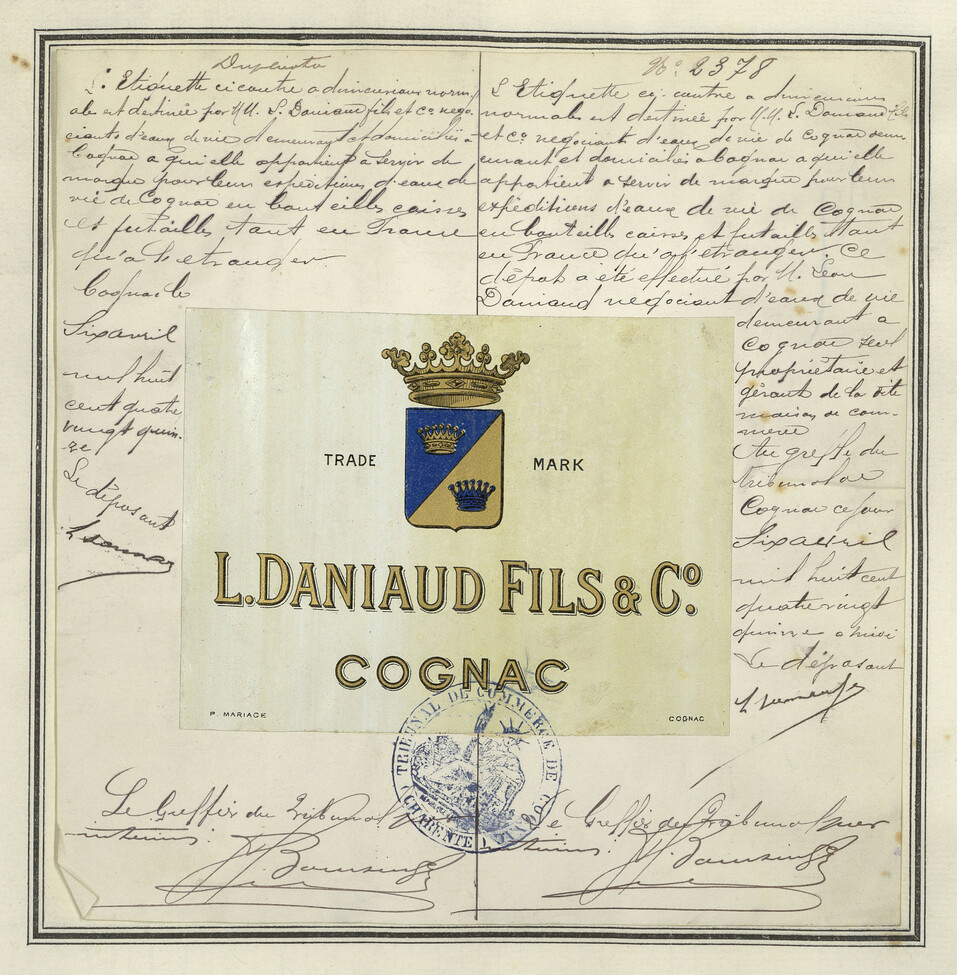 Duplicata
L'Etiquette ci contre a dimensions norm
ales est destinée par MM. L. Daniaud fils et Co négo
ciants d'eaux de vie demeurant et domiciliés à
Cognac a qui elle appartient a servir de
marque pour leurs expéditions d'eaux de
vie de Cognac en bouteilles caisses
et futailles tant en France
qu'à l'etranger.
Cognac le
Six avril
mil huit
cent quatre
vingt quin-
ze
Le déposant
No. 2378
L'Etiquette ci-contre a dimensions
normales est destinée par M.M. L. Daniaud fils
et Co. négociant d'eaux de vie de Cognac deme
urant et domiciliés a Cognac a qui elle
appartient a servir de marque pour leurs
expéditions d'eaux de vie de Cognac
en bouteilles caisses et futailles tant
en France qu'a l'etranger. Ce
dépot a été effectué par M. Léon
Daniaud négociant d'eaux de vie
demeurant a
Cognac seul
propriétaire et
gérant de la dite
maison de com-
merce
Au greffe du
tribunal de
Cognac ce jour
Six avril
mil huit cent
quatre vingt
quinze a midi
Le déposant
TRADE MARK
L. DANIAUD FILS & Co.
COGNAC
P. MARIAGE COGNAC
TRIBUNAL DE COMMERCE DE COGNAC
(CHARENTE)
Le Greffier du Tribunal
interim
Le Greffier du Tribunal par
interim.